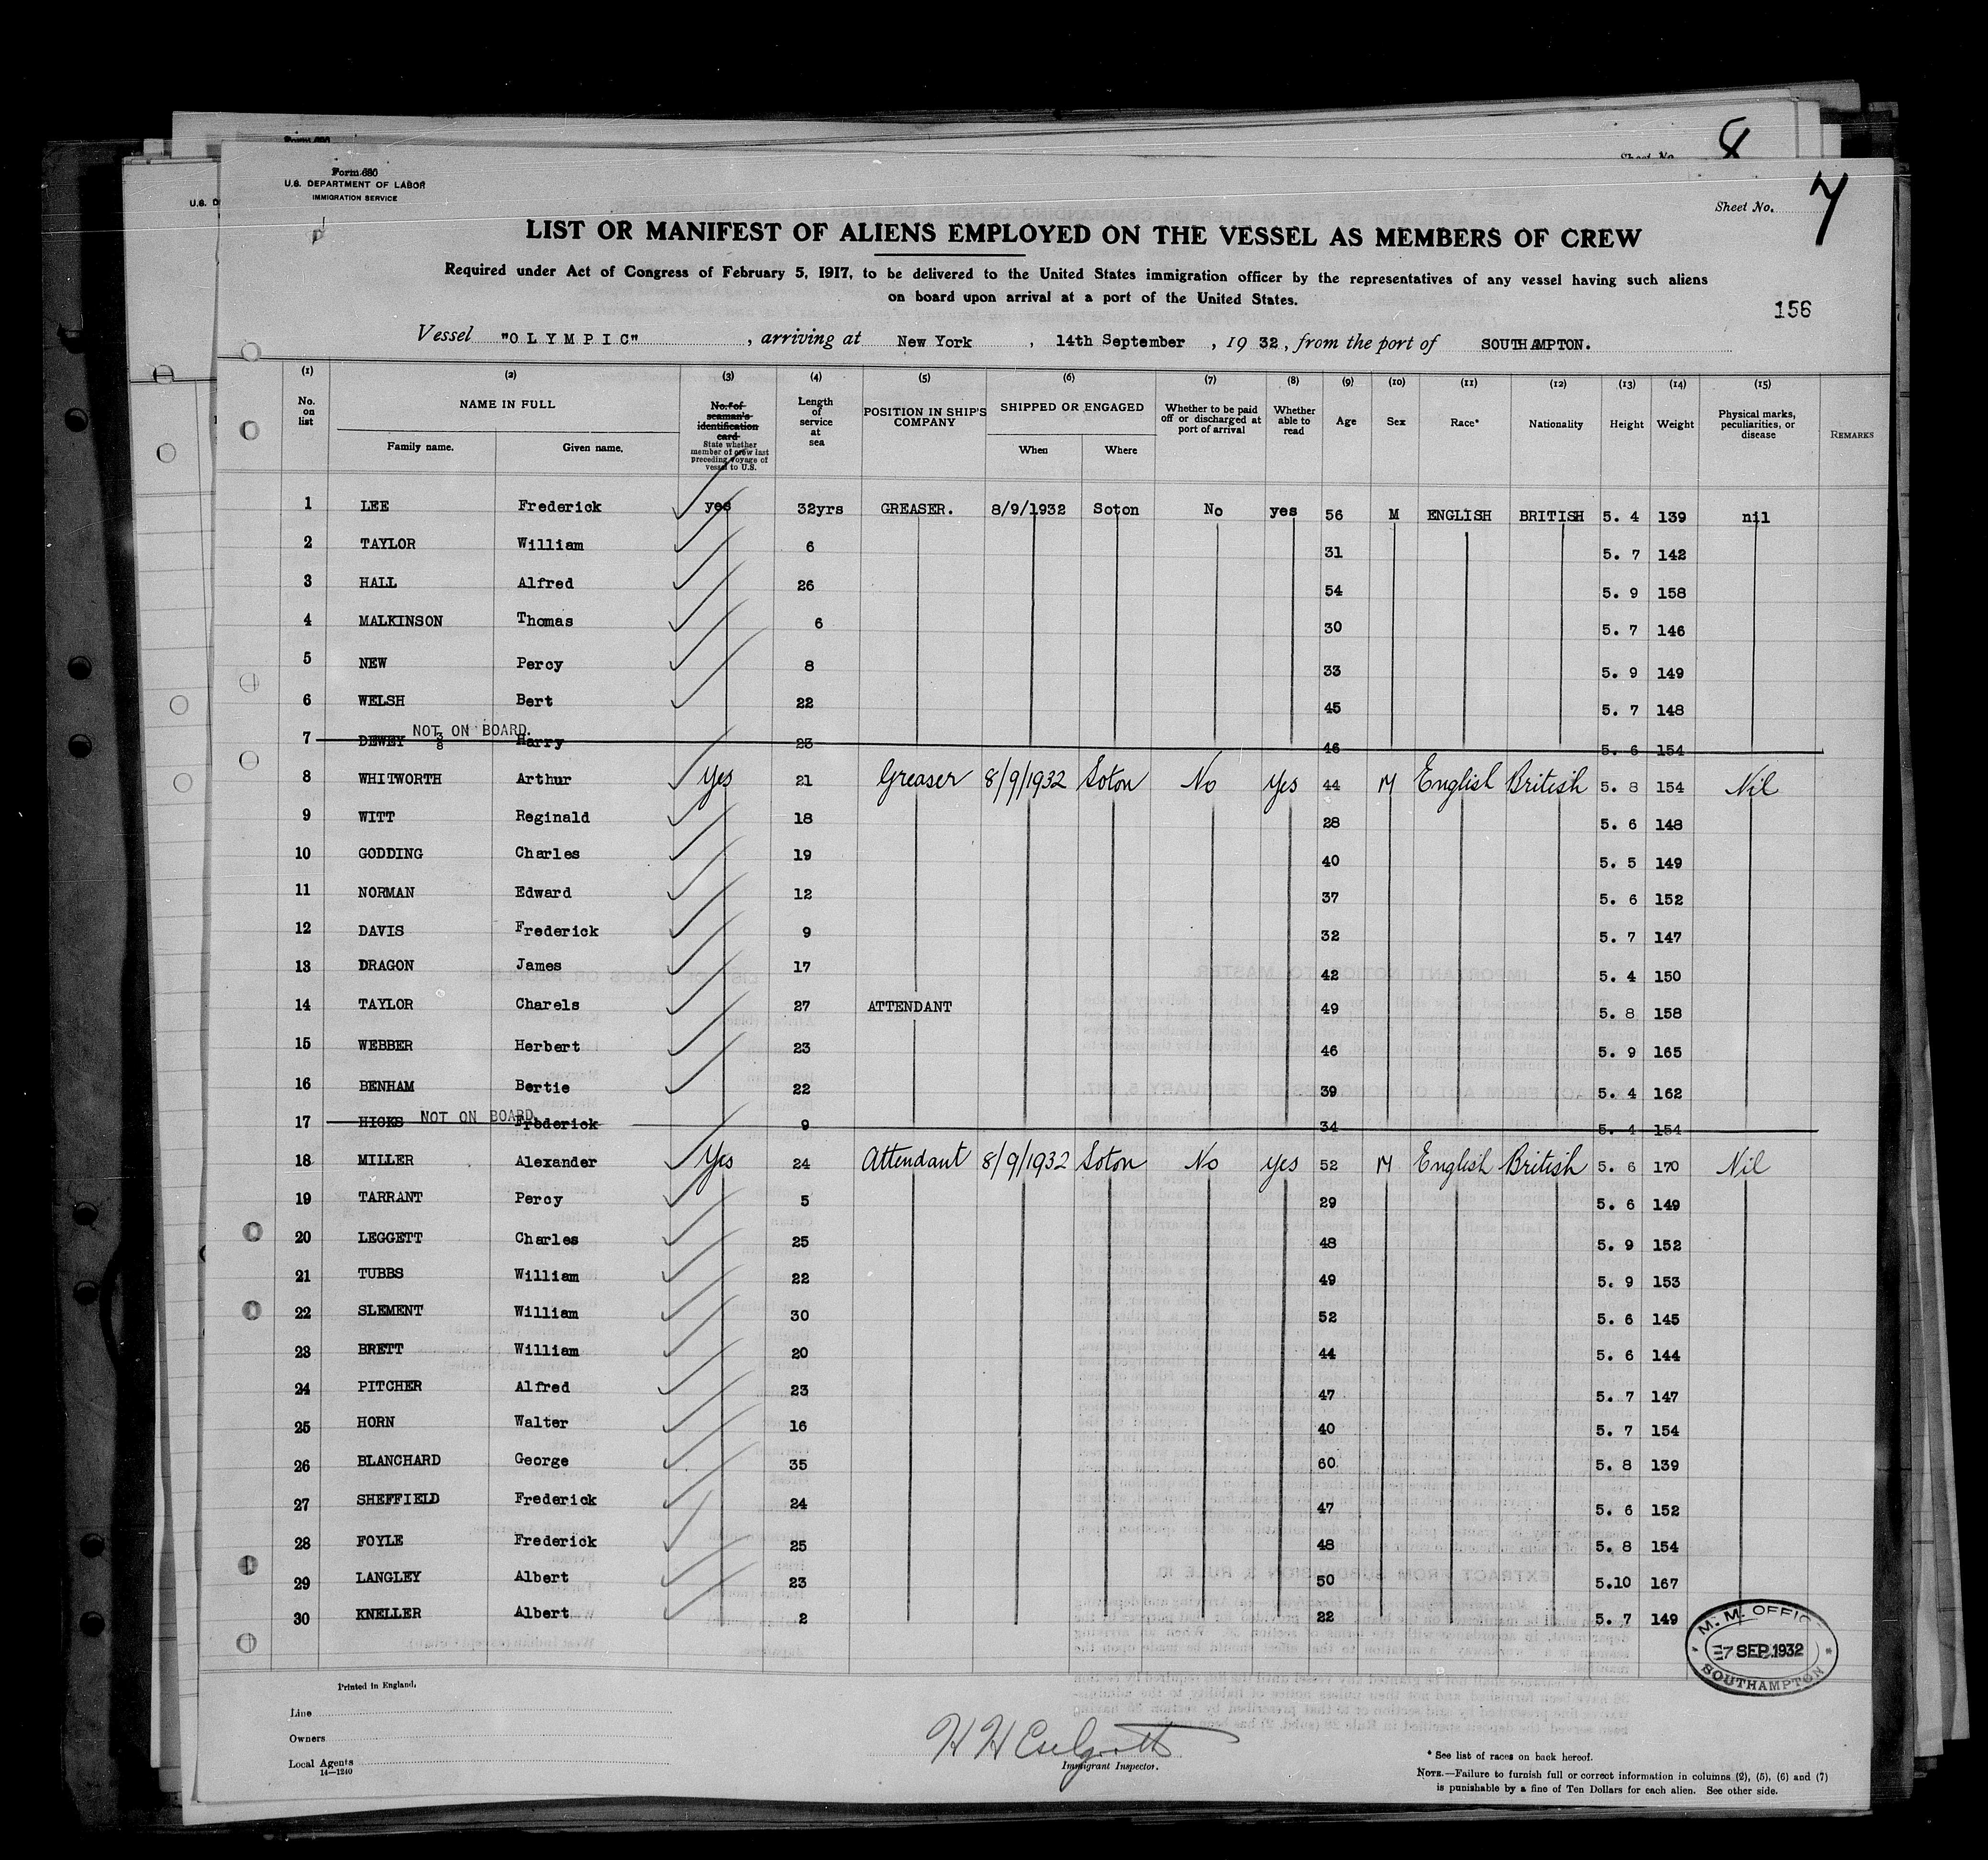 8
Form 680
U.S. DEPARTMENT OF LABOR
IMMIGRATION SERVICE
Sheet No. 7
LIST OR MANIFEST OF ALIENS EMPLOYED ON THE VESSEL AS MEMBERS OF CREW
Required under Act of Congress of February 5, 1917, to be delivered to the United States immigration officer by the representatives of any vessel having such aliens
on board upon arrival at a port of the United States.
156
Vessel "OLYMPIC", arriving at New York, 14th September, 1932, from the port of SOUTHAMPTON.
(1) (2) (3) (4) (5) (6) (7) (8) (9) (10) (11) (12) (13) (14) (15)
No. on list NAME IN FULL Family name. Given name. No. of seaman's identification card State whether member of crew last preceding voyage of vessel to U.S. Length of service at sea POSITION IN SHIP'S COMPANY SHIPPED OR ENGAGED When Where Whether to be paid off or discharged at port of arrival Whether able to read Age Sex Race* Nationality Height Weight Physical marks, peculiarities, or disease REMARKS
1 LEE Frederick yes 32yrs GREASER. 8/9/1932 Soton No yes 56 M ENGLISH BRITISH 5. 4 139 nil
2 TAYLOR William 6 31 5. 7 142
3 HALL Alfred 26 54 5. 9 158
4 MALKINSON Thomas 6 30 5. 7 146
5 NEW Percy 8 33 5. 9 149
6 WELSH Bert 22 45 5. 7 148
NOT ON BOARD.
7 DEWEY Harry 23 46 5. 6 154
8 WHITWORTH Arthur Yes 21 Greaser 8/9/1932 Soton No Yes 44 M English British 5. 8 154 Nil
9 WITT Reginald 18 28 5. 6 148
10 GODDING Charles 19 40 5. 5 149
11 NORMAN Edward 12 37 5. 6 152
12 DAVIS Frederick 9 32 5. 7 147
13 DRAGON James 17 42 5. 4 150
14 TAYLOR Charels 27 ATTENDANT 49 5. 8 158
15 WEBBER Herbert 23 46 5. 9 165
16 BENHAM Bertie 22 39 5. 4 162
NOT ON BOARD
17 HICKS Frederick 9 34 5. 4 154
18 MILLER Alexander Yes 24 Attendant 8/9/1932 Soton No Yes 52 M English British 5. 6 170 Nil
19 TARRANT Percy 5 29 5. 6 149
20 LEGGETT Charles 25 48 5. 9 152
21 TUBBS William 22 49 5. 9 153
22 SLEMENT William 30 52 5. 6 145
23 BRETT William 20 44 5. 6 144
24 PITCHER Alfred 23 47 5. 7 147
25 HORN Walter 16 40 5. 7 154
26 BLANCHARD George 35 60 5. 8 139
27 SHEFFIELD Frederick 24 47 5. 6 152
28 FOYLE Frederick 25 48 5. 8 154
29 LANGLEY Albert 23 50 5.10 167
30 KNELLER Albert 2 22 5. 7 149
M. M. OFFIC
7 SEP. 1932
SOUTHAMPTON
Printed in England.
Line
Owners
Local Agents
14—1240
Immigrant Inspector.
* See list of races on back hereof.
NOTE.—Failure to furnish full or correct information in columns (2), (5), (6) and (7)
is punishable by a fine of Ten Dollars for each alien. See other side.